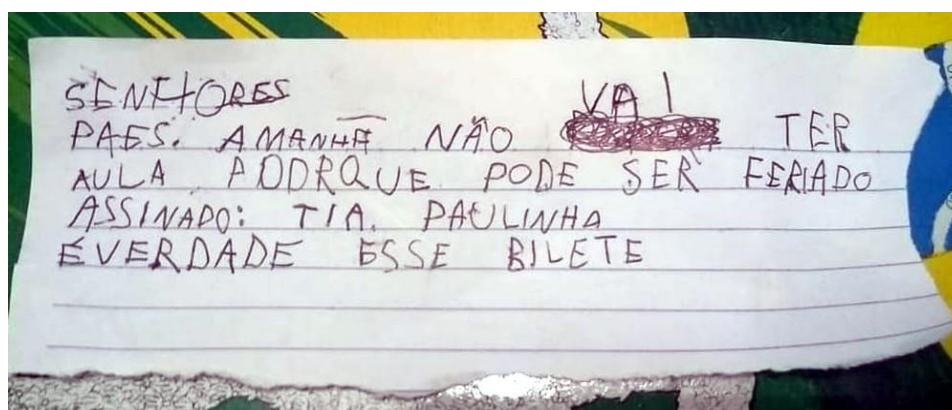 SENHORES VAI
PAES. AMANHÃ NÃO TER
AULA PODRQUE PODE SER FERIADO
ASSINADO: TIA. PAULINHA
ÉVERDADE ESSE BILETE